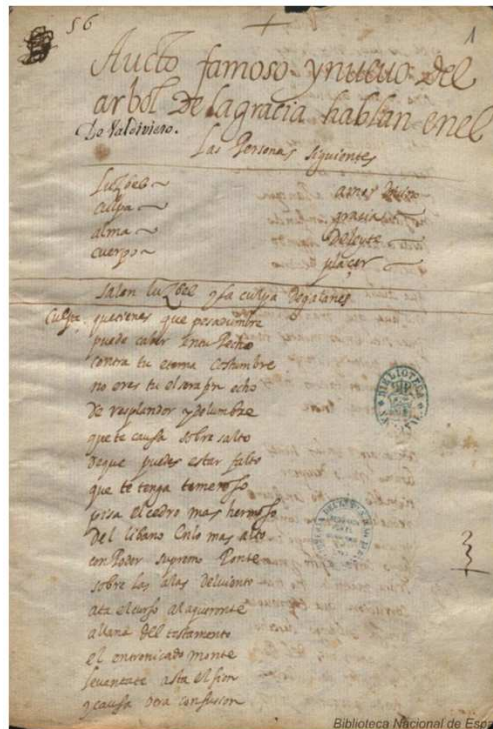 56
1
Aucto famoso y nueuo del
arbol De la gracia hablan en el
Lo Valdivieso.
Las Personas siguientes
Luzbel amor divino
culpa gracia
alma Deleyte
cuerpo plaçer
salen luzbel y la culpa de galanes
Culpa. que tienes que pesadumbre
puede caber en tu Pecho
contra tu eterna costumbre
no eres tu el serafin echo
de resplandor y de lumbre
que te causa sobre salto
de que puedes estar falto
que te tenga temeroso
pisa el cedro mas hermoso
del libano en lo mas alto
con Poder supremo Ponte
sobre las alas del viento
ata el curso
allana del testamento
el entronicado monte
levantate asta el sion
y causa confusion
BIBLIOTECA
Biblioteca Nacional de Espa